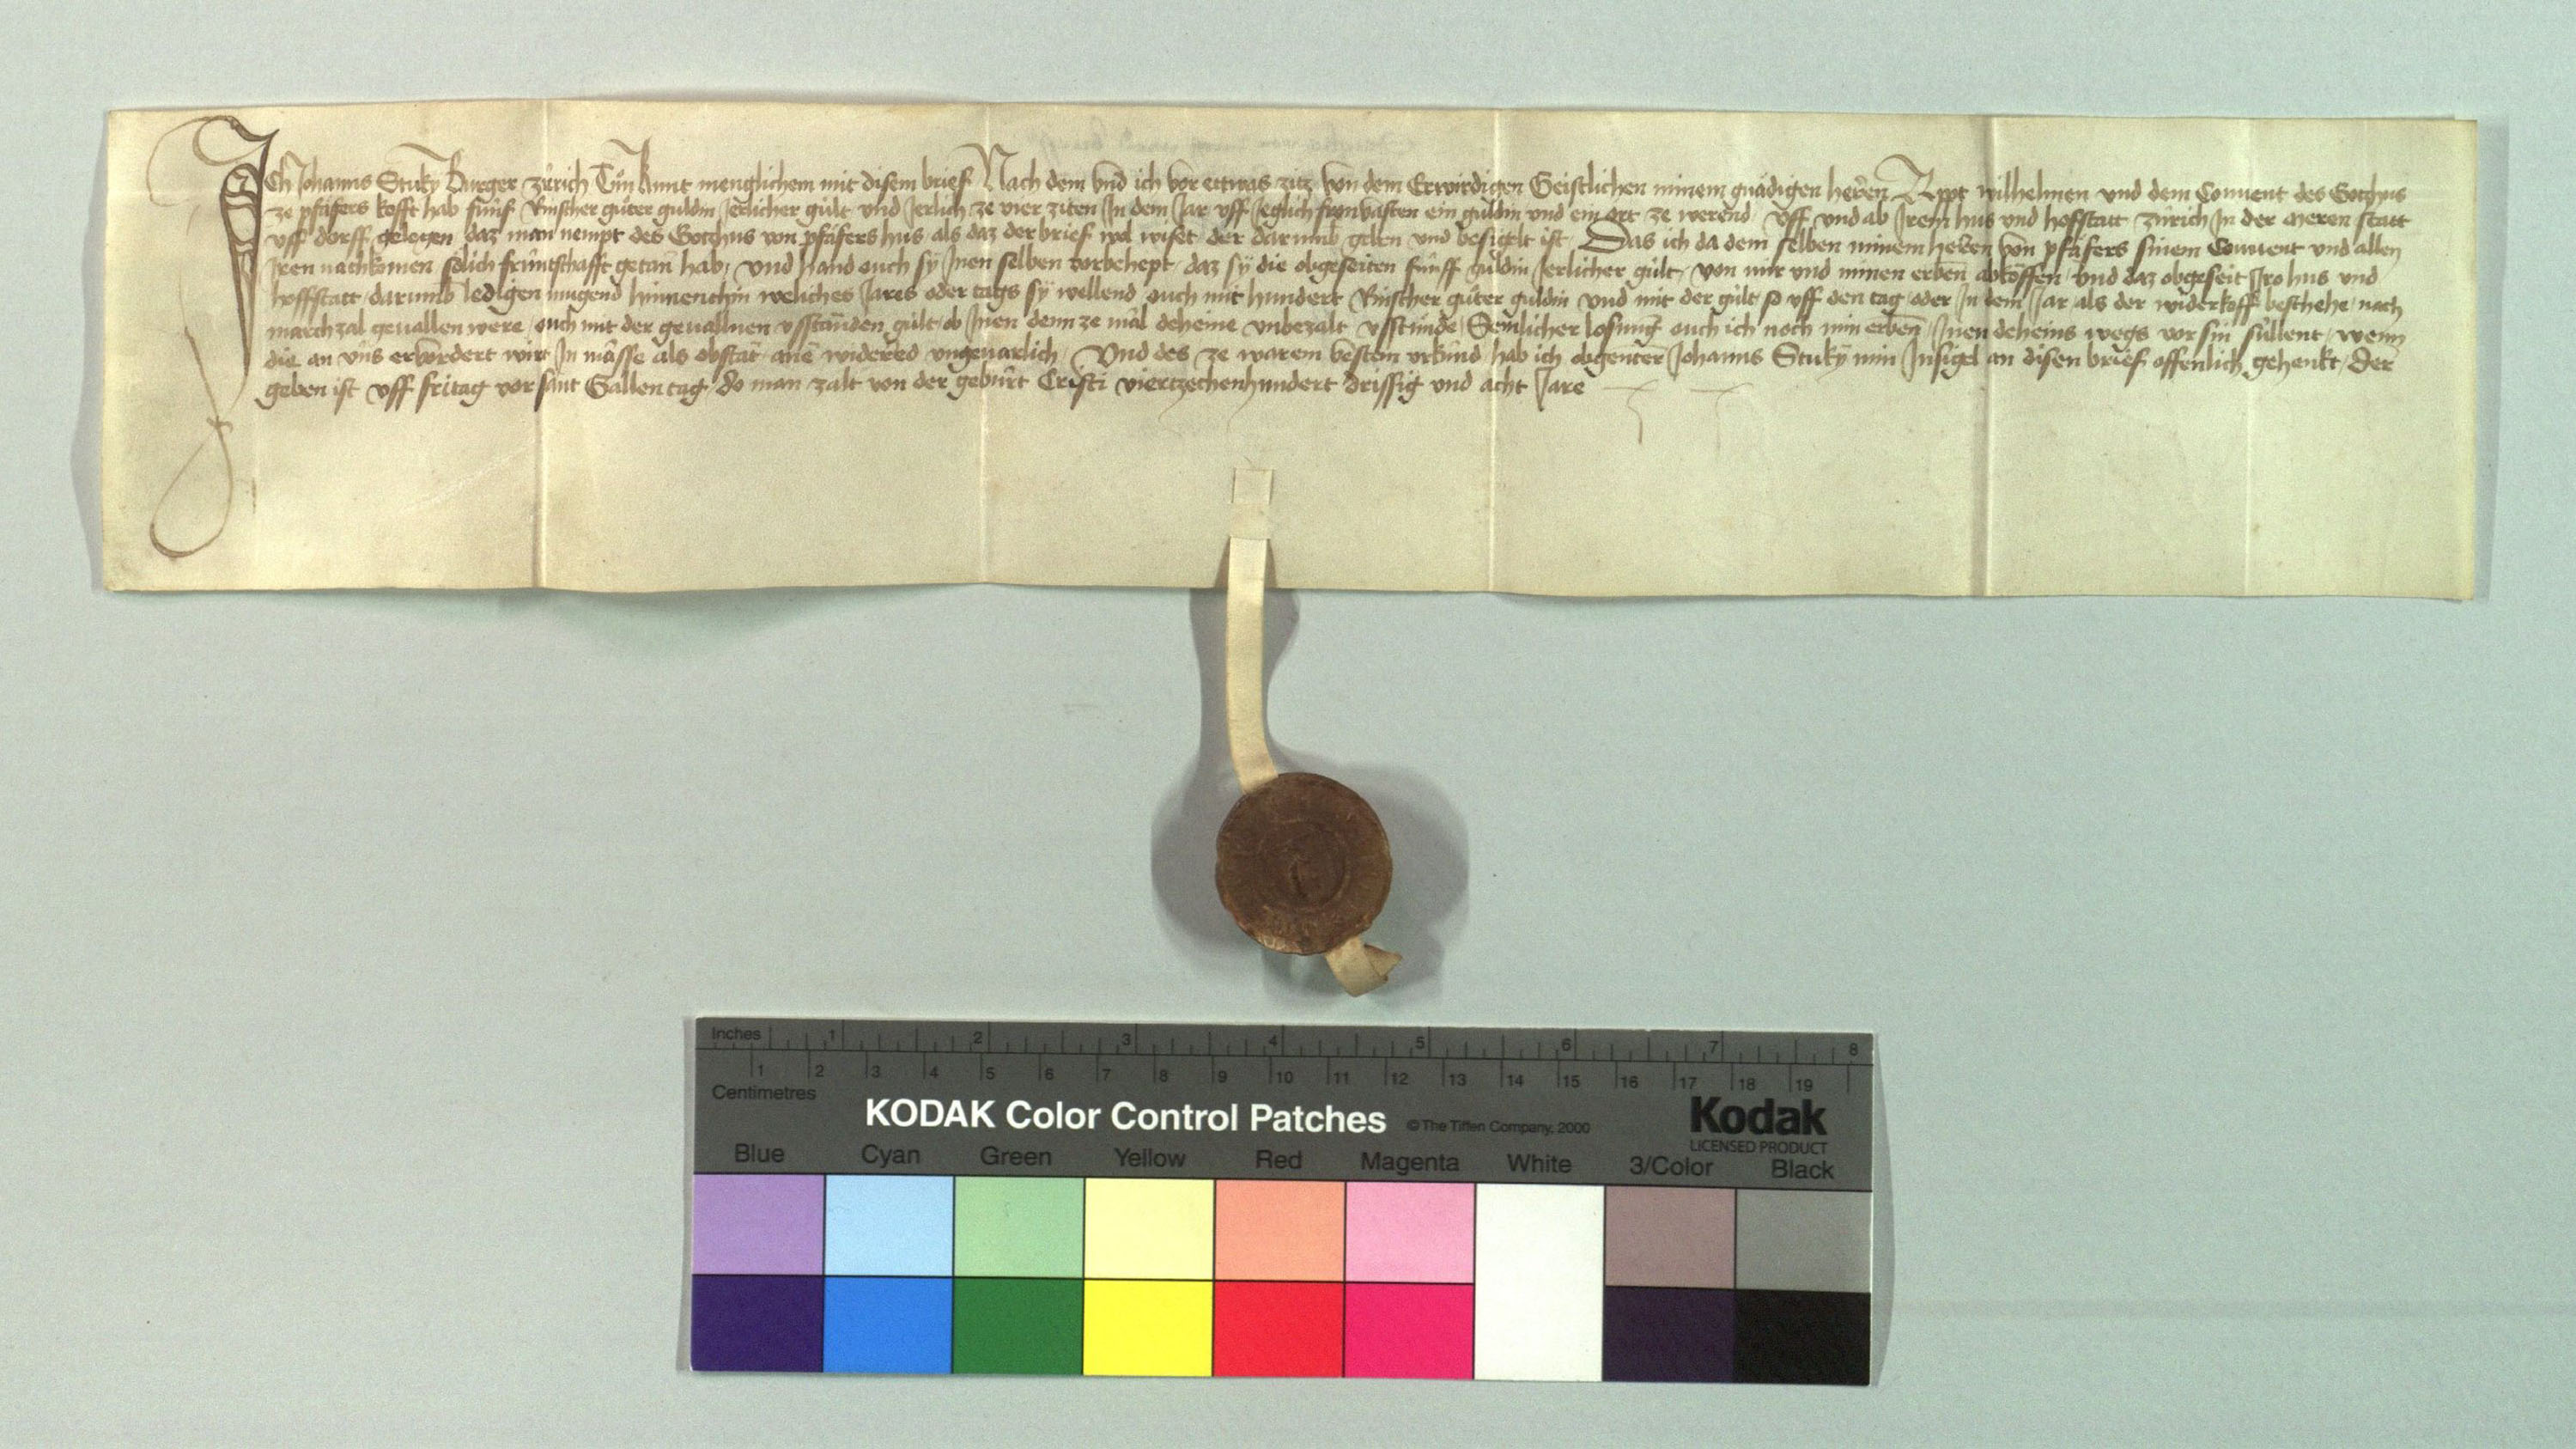 Ich Johanns Stuky Burger zürich Tůn kunt menglichem mit disem brief Nach dem und ich vor ettwas zitz von dem Erwirdigen Geistlichen minem gnädigen herren Appt wilhelmen und dem Convent des Gotzhus
ze pfäfers kofft hab fünf Rinscher gůter guldin Jerlicher gült und Jerlich ze vier ziten In dem Jar uff Jeglich fronvasten ein guldin und ein ort ze werend uff und ab Jrem hus und hofstatt zürich In der meren statt
uff dorff gelegen daz man nempt des Gotzhus von pfäfers hus als daz der brief wol wiset der darumb geben und besigelt ist Das ich da dem selben minem herren von pfäfers sinem Convent und allen
Jren nachkomen sölich früntschafft getan hab und hand ouch sÿ Jnen selben vorbehept daz sÿ die obgeseiten fünff guldin Jerlicher gült von mir und minen erben abköffen und daz obgeseit Jro hus und
hoffstatt darumb ledigen mugend hinnenthin weliches Jares oder tags sÿ wellend ouch mit hundert Rinscher gůter guldin und mit der gült so uff den tag oder In dem Jar als der widerkoff beschehe nach
marchzal gevallen were ouch mit der gevallnen usstanden gült ob Jnen denn ze mal deheine unbezalt usstünde Semlicher losung ouch ich noch min erben Jnen deheins wegs vor sin süllent wenn
die an üns ervordert wirt In mässe als obstat ane widerred ungevarlich Und des ze warem vestem urkünd hab ich obgenter Johanns Stukÿ min Insigel an disen brief offenlich gehenkt der
geben ist uff fritag vor sant Gallen tag do man zalt von der gebürt Cristi viertzechenhundert drissig und acht Jare
Inches 1 2 3 4 5 6 7 8
1 2 3 4 5 6 7 8 9 10 11 12 13 14 15 16 17 18 19
Centimetres
KODAK Color Control Patches © The Tiffen Company, 2000 Kodak
LICENSED PRODUCT
Blue Cyan Green Yellow Red Magenta White 3/Color Black